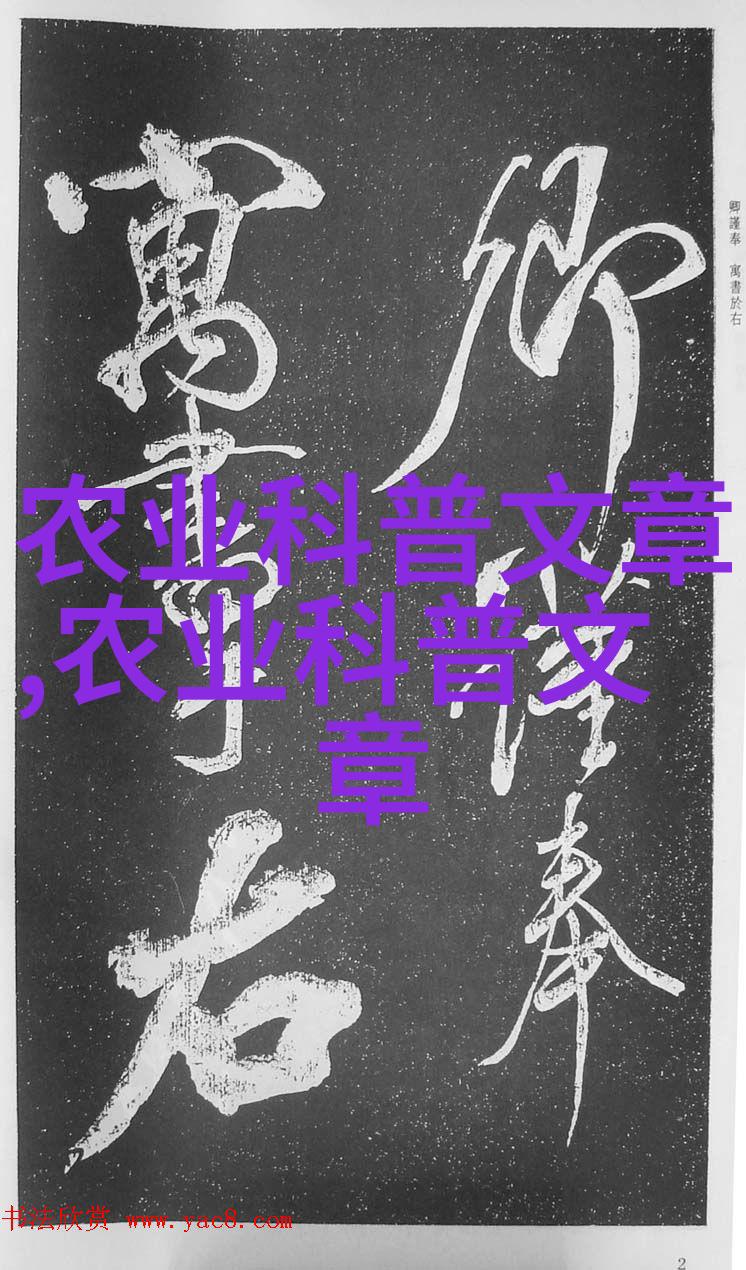 卿謹奉
寓書於右
卿謹奉 寓書於右
农业科普文章
,农业科普文
章
书法欣赏 www.yac8.com
2